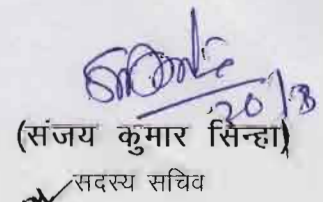 20/3
(संजय कुमार सिन्हा)
सदस्य सचिव